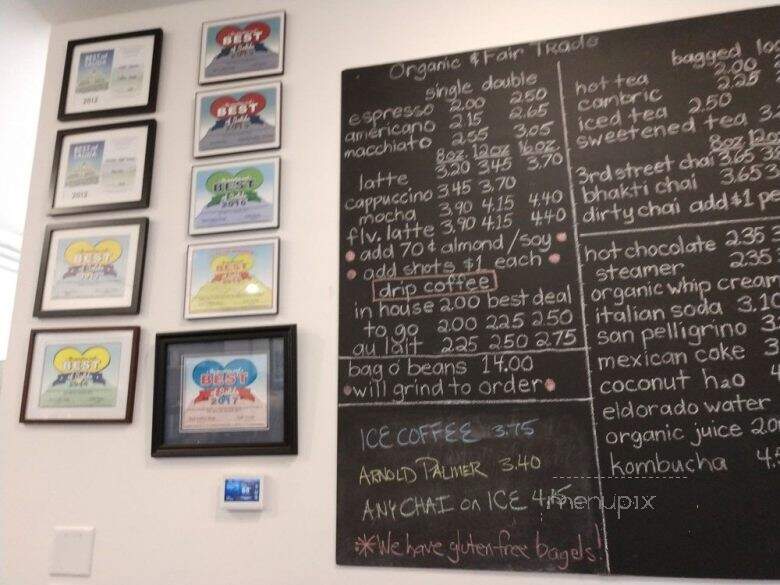 BEST of
SALIDA
2012
2012
BEST
of Salida
BEST
BEST
2016
BEST
BEST
of Salida
2017
Organic & Fair Trade
single double
espresso 2.00 2.50
americano 2.15 2.65
macchiato 2.55 3.05
8oz. 12oz 16oz.
latte 3.20 3.45 3.70
cappuccino 3.45 3.70
mocha 3.90 4.15 4.40
flv. latte 3.90 4.15 4.40
add 70¢ almond/soy
add shots $1 each
drip coffee
in house 2.00 best deal
to go 2.00 2.25 2.50
au lait 2.25 2.50 2.75
bag o' beans 14.00
will grind to order
ICE COFFEE 3.75
ARNOLD PALMER 3.40
ANY CHAI on ICE 4.15
*We have gluten-free bagels!
bagged
hot tea 2.00
cambric 2.25
iced tea 2.50
sweetened tea
8oz
3rd street chai 3.65
bhakti chai 3.65
dirty chai add $1
hot chocolate 2.35
steamer 2.35
organic whip cream
italian soda
san pelligrino
mexican coke
coconut h2o
eldorado water
organic juice
kombucha
menupix